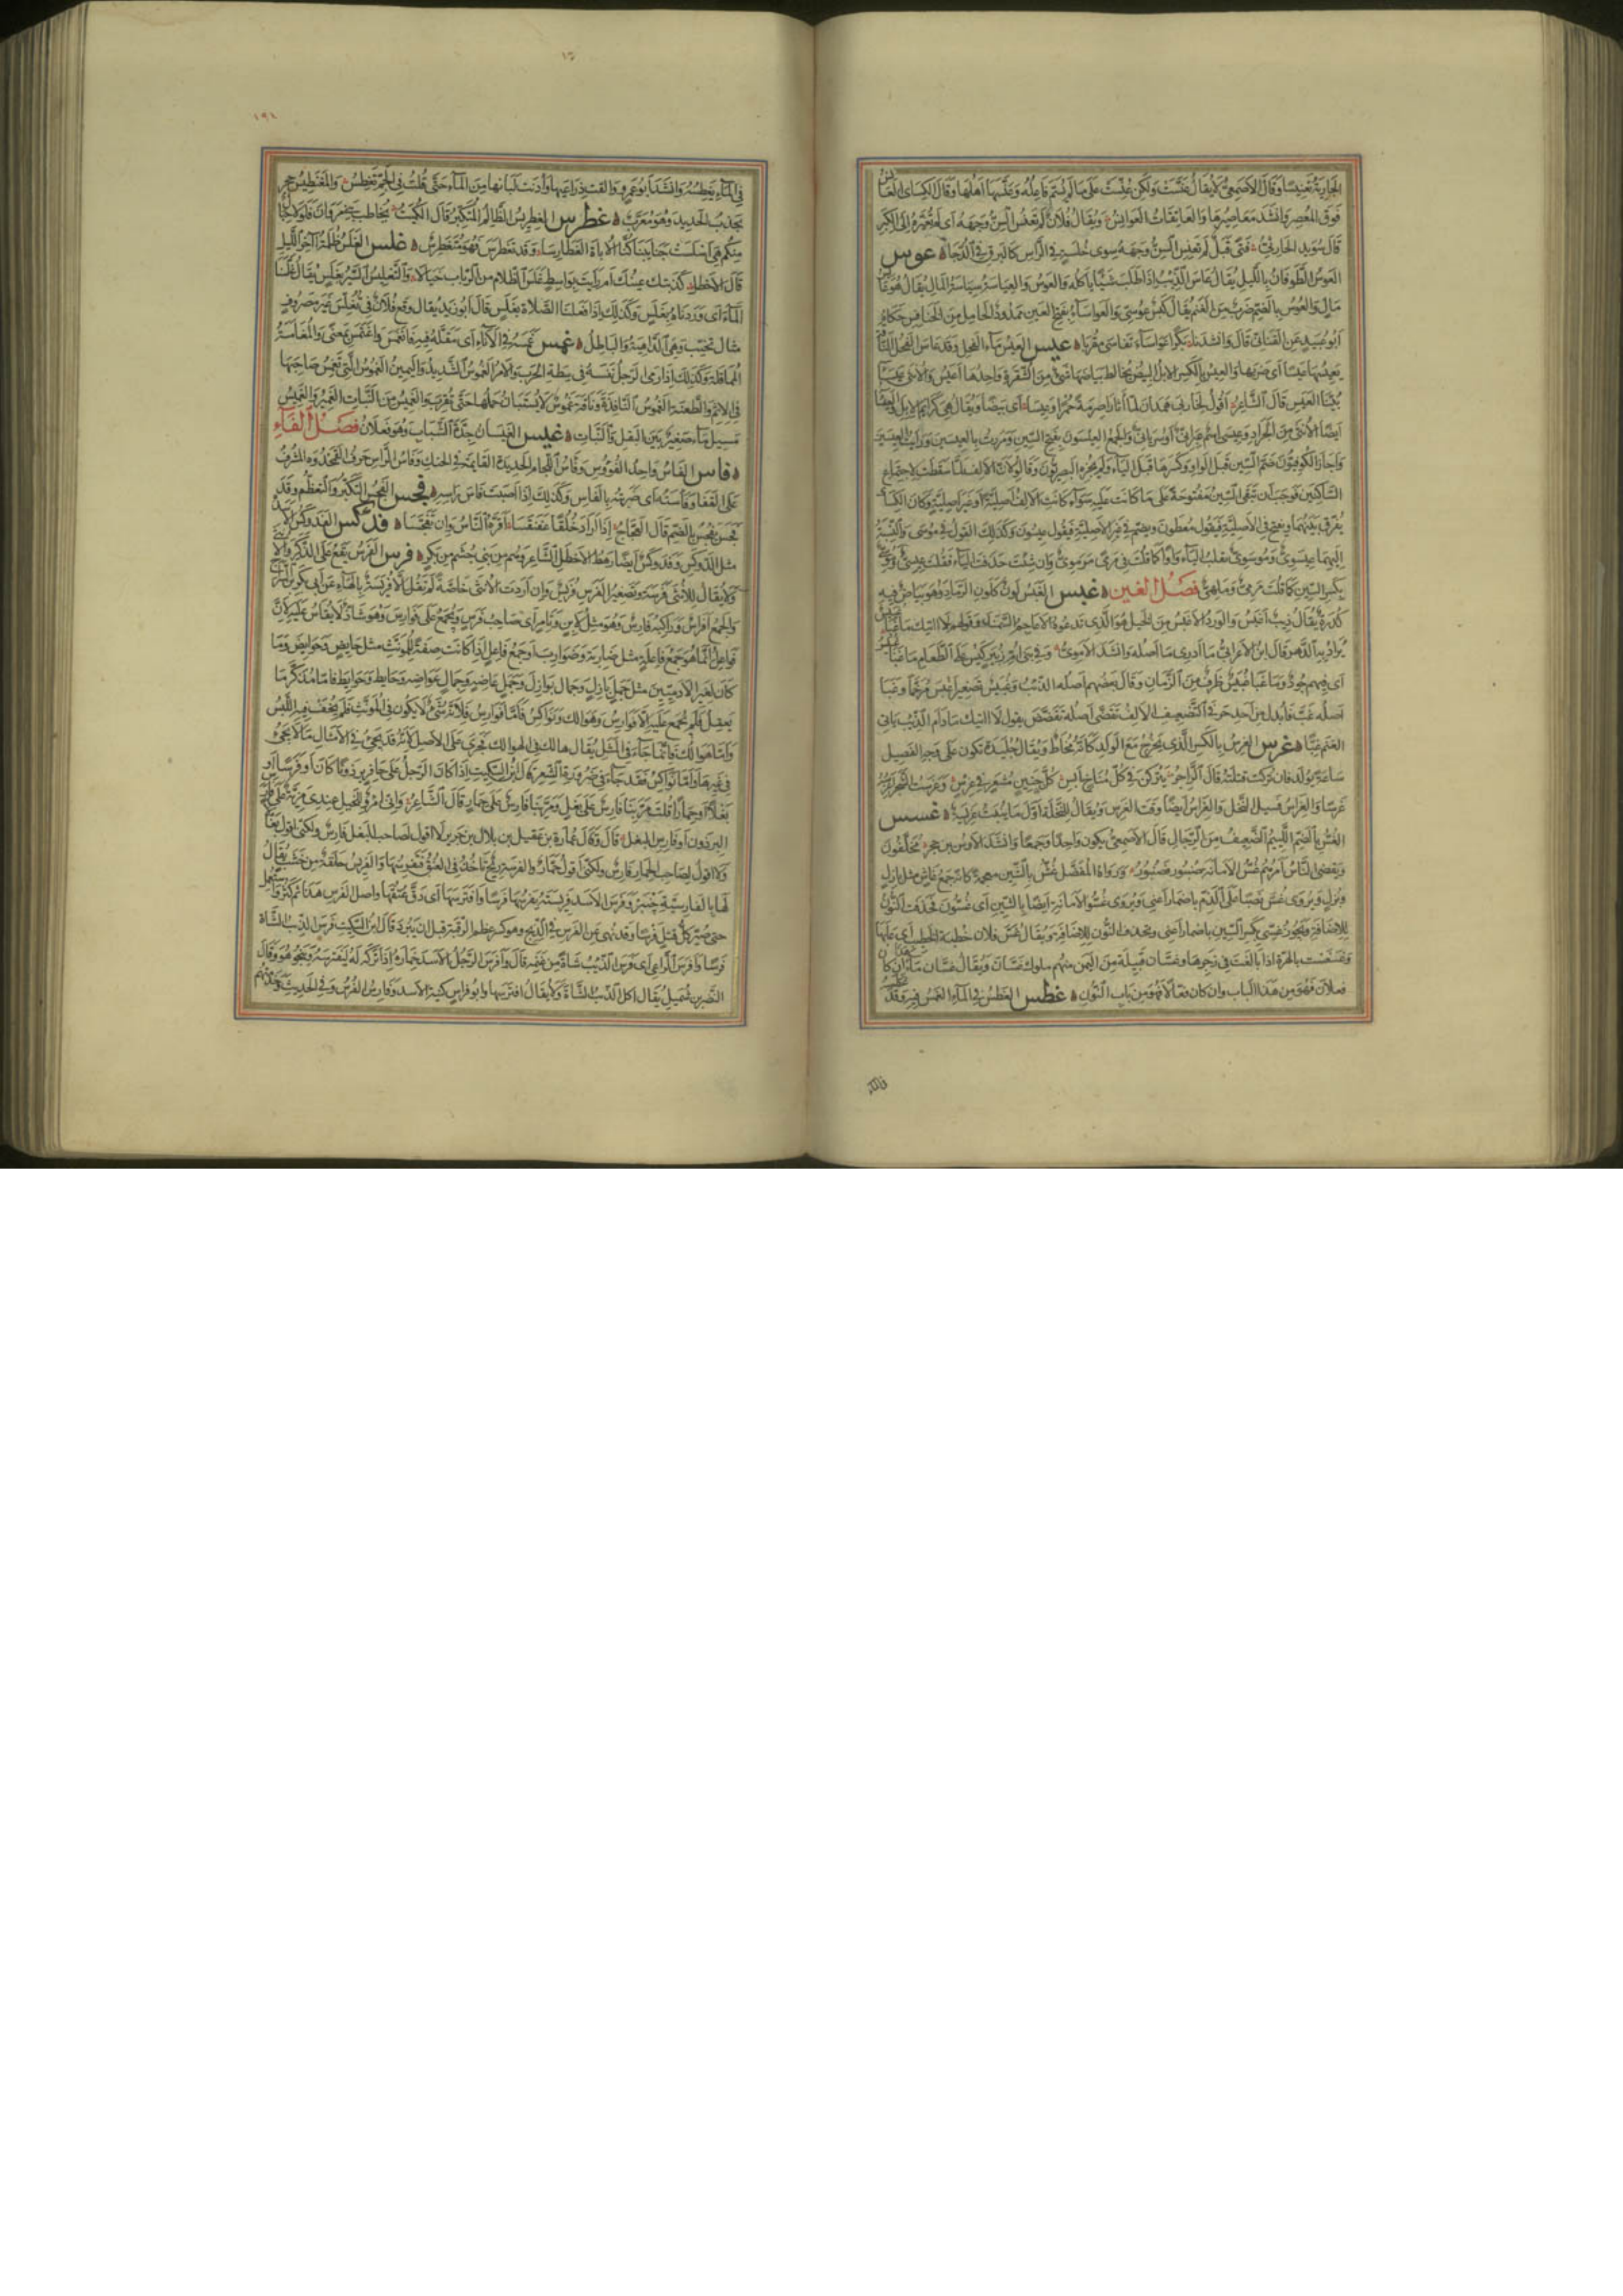 الجارية تعنيسا وقال الاصمعى لا يقال عنست ولكن عنست على ما لم يسم فاعله وعنسها اهلها وقال الكسائى العانس
فوق المعصر وانشد معاصيرها والعاتقات العوانس ويقال فلان لم تعنس السن وجهه اى لم تغيره الى الكبر
قال سويد الحارثى فتى قبل لم تعنس السن وجهه سوى خلسة فى الراس كالبرق فى الدجا عوس
العوس الطوفان بالليل يقال عاس الذئب اذا طلب شيئا ياكله والعوس والعياسة سياسة المال يقال هو عائس
مال والعوس بالضم ضرب من الغنم يقال كبش عوسى والعواساء بفتح العين ممدودة الحامل من الخنافس حكاه
ابو عبيد عن القنانى قال وانشدنا بكرا عواساء تفاسى مقربا عيس العيس ماء الفحل وقد عاس الفحل الناقة
يعيسها عيسا اى ضربها والعيس بالكسر الابل البيض يخالط بياضها شىء من الشقرة واحدها اعيس والانثى عيساء
بينا العيس قال الشاعر اقول لخاربى همدان لما اثارا صرمة حمرا وعيسا اى بيضا ويقال هى كرائم الابل والعيساء
ايضا الانثى من الجراد وعيسى اسم عبرانى او سريانى والجمع العيسون بفتح السين ومررت بالعيسين ورايت العيسين
واجاز الكوفيون ضم السين قبل الواو وكسرها قبل الياء ولم يجزه البصريون وقالوا لان الالف لما سقطت لاجتماع
الساكنين فوجب ان تبقى السين مفتوحة على ما كانت عليه سواء كانت الالف اصلية او غير اصلية وكان الكسائى
يفرق بينهما ويفتح فى الاصلية فيقول معطون ويضم فى غير الاصلية فيقول عيسون وكذلك القول فى موسى والنسبة
اليهما عيسوى وموسوى بقلب الياء واوا كما قلت فى مرمى مرموى وان شئت حذفت الياء فقلت عيسى وموسى
بكسر السين كما قلت مرمى وملهى فصل الغين غبس الغبس لون كلون الرماد وهو بياض فيه
كدرة يقال ذئب اغبس والورد الاغبس من الخيل هو الذى تدعوه الاعاجم السمند وقولهم لا اتيك ما غبا غبيس
يراد به الدهر قال ابن الاعرابى ما ادرى ما اصله وانشد الاموى وفى بنى ام زبير كيس على الطعام ما غبا غبيس
اى فيهم جود وما غبا غبيس ظرف من الزمان وقال بعضهم اصله الذئب وغبيس تصغير اغبس مرخما وغبا
اصله غب فابدل من احد حرفى التضعيف الالف تقضى اصله تقضض يقول لا اتيك ما دام الذئب ياتى
الغنم غبا غرس الغرس بالكسر الذى يخرج مع الولد كانه مخاط ويقال جليدة تكون على وجه الفصيل
ساعة يولد فان تركت قتلته قال الراجز يتركن فى كل مناخ ابس كل جنين مشعر فى غرس وغرست الشجر اغرسه
غرسا والغراس فسيل النخل والغراس ايضا وقت الغرس ويقال للنخلة اول ما ينبت غريسة غسس
الغس بالضم اللئيم الضعيف من الرجال قال الاصمعى يكون واحدا وجمعا وانشد لاوس بن حجر مخلفون
ويقضى الناس امرهم غس الامانة صنبور فصنبور ورواه المفضل غش بالشين معجمة كانه جمع غاش مثل بازل
وبزل ويروى غس نصبا على الذم باضمار اعنى ويروى غسو الامانة ايضا بالسين اى غسون فحذفت النون
للاضافة ويجوز غسى بكسر السين باضمار اعنى ويحذف النون للاضافة ويقال غس فلان خطبة الخطيب اى عابها
وغسغست بالهرة اذا بالغت فى زجرها وغسان قبيلة من اليمن منهم ملوك غسان ويقال غسان ماء ان كان
فعلان فهو من هذا الباب وان كان فعالا فهو من باب النون غطس الغطس فى الماء الغمس فيه وقد
١٩١
فى الماء يغطسه وانشد ابو عمرو والقت ذراعيها وادنت لبانها من الماء حتى قلت فى الجم تغطس والمغنطيس حجر
يجذب الحديد وهو معرب غطرس الغطريس الظالم المتكبر قال الكميت يخاطب بنى مروان فلولا حبال
منكم هى امرست جنائبنا كنا الاباة الغطارسا وقد تغطرس فهو متغطرس غلس الغلس ظلمة اخر الليل
قال الاخطل كذبتك عينك ام رايت بواسط غلس الظلام من الرباب خيالا والتغليس السير بغلس يقال غلسنا
الماء اى وردناه بغلس وكذلك اذا فعلنا الصلاة بغلس قال ابو زيد يقال وقع فلان فى تغلس غير مصروف
مثال تخيب وهى الداهية والباطل غمس غمسه فى الماء اى مقله فيه فانغمس واغتمس بمعنى والمغامسة
المماقلة وكذلك اذا رمى الرجل نفسه فى سطة الحرب والامر الغموس الشديد واليمين الغموس التى تغمس صاحبها
فى الاثم والطعنة الغموس النافذة وناقة غموس لا يستبان حملها حتى تقرب والغميس من النبات الغمير والغميس
مسيل ماء صغير بين البقل والنبات غيس الغيسان حدة الشباب وهو فعلان فصل الفاء
فاس الفاس واحد الفؤوس وفاس اللجام الحديدة القائمة فى الحنك وفاس الراس حرف القمحدوة المشرف
على القفا وفاسته اى ضربته بالفاس وكذلك اذا اصبت فاس راسه فجس الفجس التكبر والتعظم وقد
فجس يفجس بالضم قال العجاج اذا اراد خلقا عفنقسا اقره الناس وان تفجسا فدكس الفدوكس الاسد
مثل الدوكس وفدوكس ايضا رهط الاخطل الشاعر وهم من بنى جشم من بكر فرس الفرس يقع على الذكر والانثى
ولا يقال للانثى فرسة وتصغير الفرس فريس وان اردت الانثى خاصة لم تقل الا فريسة بالهاء عن ابى بكر بن السراج
والجمع افراس وراكبه فارس وهو مثل لابن وتامر اى صاحب فرس ويجمع على فوارس وهو شاذ لا يقاس عليه لان
فواعل انما هو جمع فاعلة مثل ضاربة وضوارب او جمع فاعل اذا كانت صفة للمونث مثل حايض وحوايض وما
كان لغير الادميين مثل جمل بازل وجمال بوازل وجمل عاضه وجمال عواضه وحايط وحوايط فاما مذكر ما
يعقل فلم يجمع عليه الا فوارس وهوالك ونواكس فاما فوارس فلانه شىء لا يكون فى المونث فلم يخف فيه اللبس
واما هوالك فانما جاء فى المثل يقال هالك فى الهوالك فجرى على الاصل لانه قد يجىء فى الامثال ما لا يجىء
فى غيرها واما نواكس فقد جاء فى ضرورة الشعر قال ابن السكيت اذا كان الرجل على حافر برذونا كان او فرسا او
بغلا او حمارا قلت مر بنا فارس على بغل ومر بنا فارس على حمار قال الشاعر وانى امرؤ للخيل عندى مزية على فارس
البرذون او فارس البغل قال وقال عمارة بن عقيل بن بلال بن جرير لا اقول لصاحب البغل فارس ولكنى اقول بغال
ولا اقول لصاحب الحمار فارس ولكنى اقول حمار والفرسة ريح تاخذ فى العنق فتفرسها والفريس حلقة من خشب يقال
لها بالفارسية چنبر وفرس الاسد فريسته يفرسها فرسا وافترسها اى دق عنقها واصل الفرس هذا ثم كثر واستعمل
حتى صير كل قتل فرسا وقد نهى عن الفرس فى الذبح وهو كسر عظم الرقبة قبل ان يبرد قال ابن السكيت فرس الذئب الشاة
فرسا وافرس الراعى اى فرس الذئب شاة من غنمه قال وافرس الرجل الاسد حماره اذا تركه له ليفترسه وينجو هو وقال
النضر بن شميل يقال اكل الذئب الشاة ولا يقال افترسها وابو فراس كنية الاسد وفارس الفرس وفى الحديث وخدمتهم